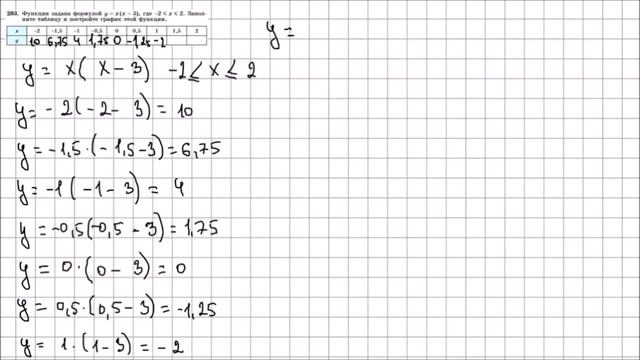 283. Функция задана формулой y = x(x − 3), где −2 ≤ x ≤ 2. Запол-
ните таблицу и постройте график этой функции.
x -2 -1,5 -1 -0,5 0 0,5 1 1,5 2
y 10 6,75 4 1,75 0 -1,25 -2
y =
y = x( x - 3) -2 ≤ x ≤ 2
y = - 2(-2 - 3) = 10
y = -1,5·(-1,5-3)=6,75
y = -1(-1 - 3) = 4
y = -0,5(-0,5 - 3) = 1,75
y = 0·(0 - 3) = 0
y = 0,5·(0,5-3)= -1,25
y = 1·(1-3) = - 2